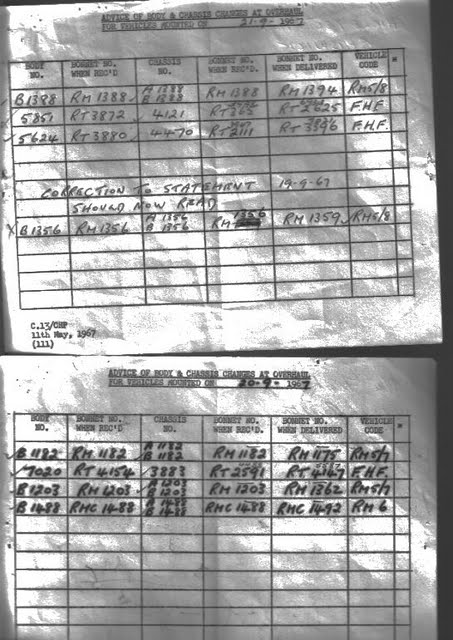 ADVICE OF BODY & CHASSIS CHANGES AT OVERHAUL
FOR VEHICLES MOUNTED ON 21-9-1967
BODY NO. BONNET NO. WHEN REC'D CHASSIS NO. BONNET NO. WHEN REC'D. BONNET NO. WHEN DELIVERED VEHICLE CODE *
✓ B1388 RM 1388 ✓ A 1388 B 1388 RM 1388 RM 1394 RM5/8
✓ 5851 RT 3872 ✓ 4121 RT 2625 F.H.F.
✓ 5624 RT 3880 ✓ 4470 RT 2111 RT 3396 F.H.F.
CORRECTION TO STATEMENT 19-9-67
SHOULD NOW READ
X B1356 RM 1356 A 1356 B 1356 RM 1356 RM 1359 RM5/8
C.13/CHP
11th May, 1967
(111)
ADVICE OF BODY & CHASSIS CHANGES AT OVERHAUL
FOR VEHICLES MOUNTED ON 20-9-1967
BODY NO. BONNET NO. WHEN REC'D. CHASSIS NO. BONNET NO. WHEN REC'D. BONNET NO. WHEN DELIVERED VEHICLE CODE *
✓ B1182 RM 1182 ✓ A 1182 B 1182 RM 1182 RM 1175 RM5/7
✓ 7020 RT 4154 ✓ 3883 RT 2591 F.H.F.
✓ B1203 RM 1203 ✓ A 1203 B 1203 RM 1203 RM 1362 RM5/7
✓ B1488 RMC 1488 ✓ A 1488 B 1488 RMC 1488 RMC 1492 RM 6